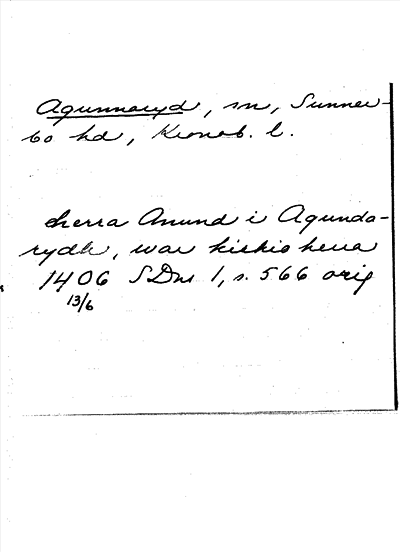 Agunnaryd, sn, Sunner-
bo hd, Kronob. l.
herra Anund i Agunda-
rydh, war kirkio herra
1406 SDns 1, s. 566 orig
13/6